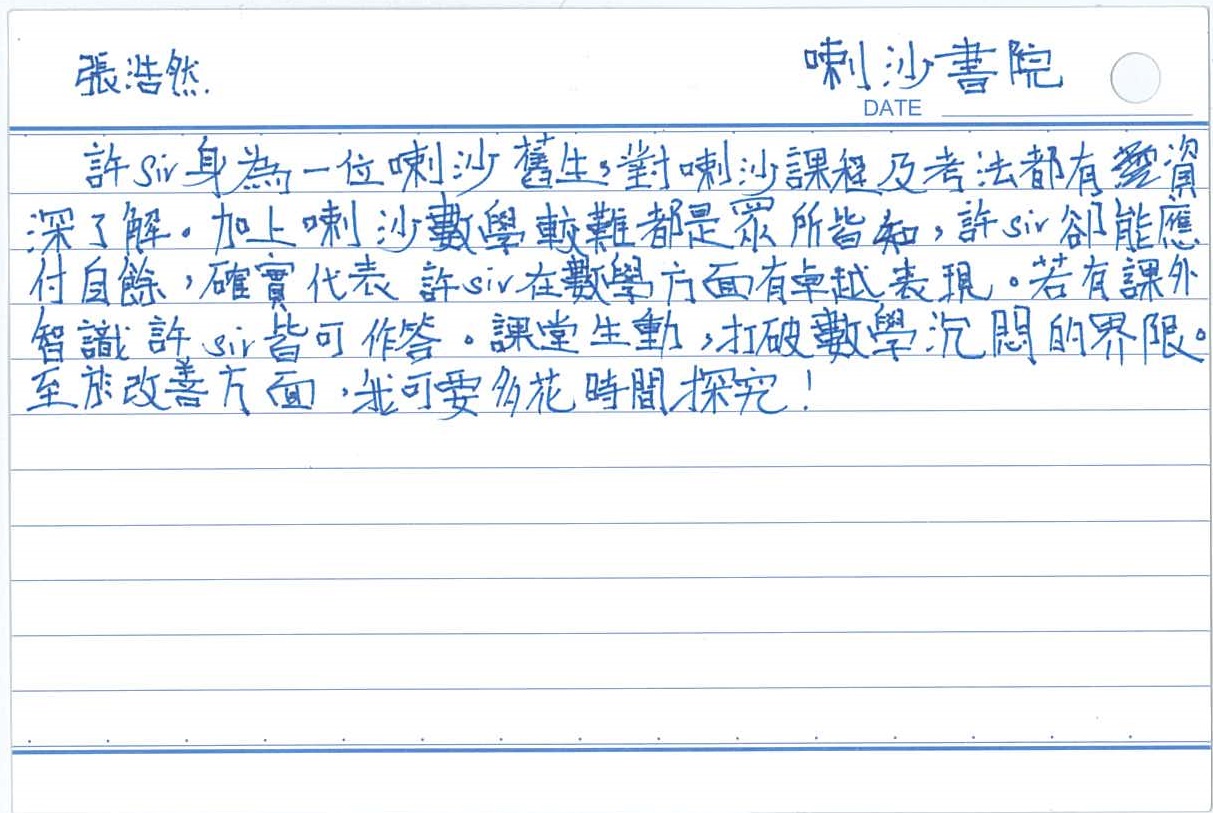 張浩然.
喇沙書院
DATE
許sir身為一位喇沙舊生,對喇沙課程及考法都有資
深了解。加上喇沙數學較難都是眾所皆知,許sir卻能應
付自餘,確實代表許sir在數學方面有卓越表現。若有課外
智識許sir皆可作答。課堂生動,打破數學沉悶的界限。
至於改善方面,我可要多花時間探究!